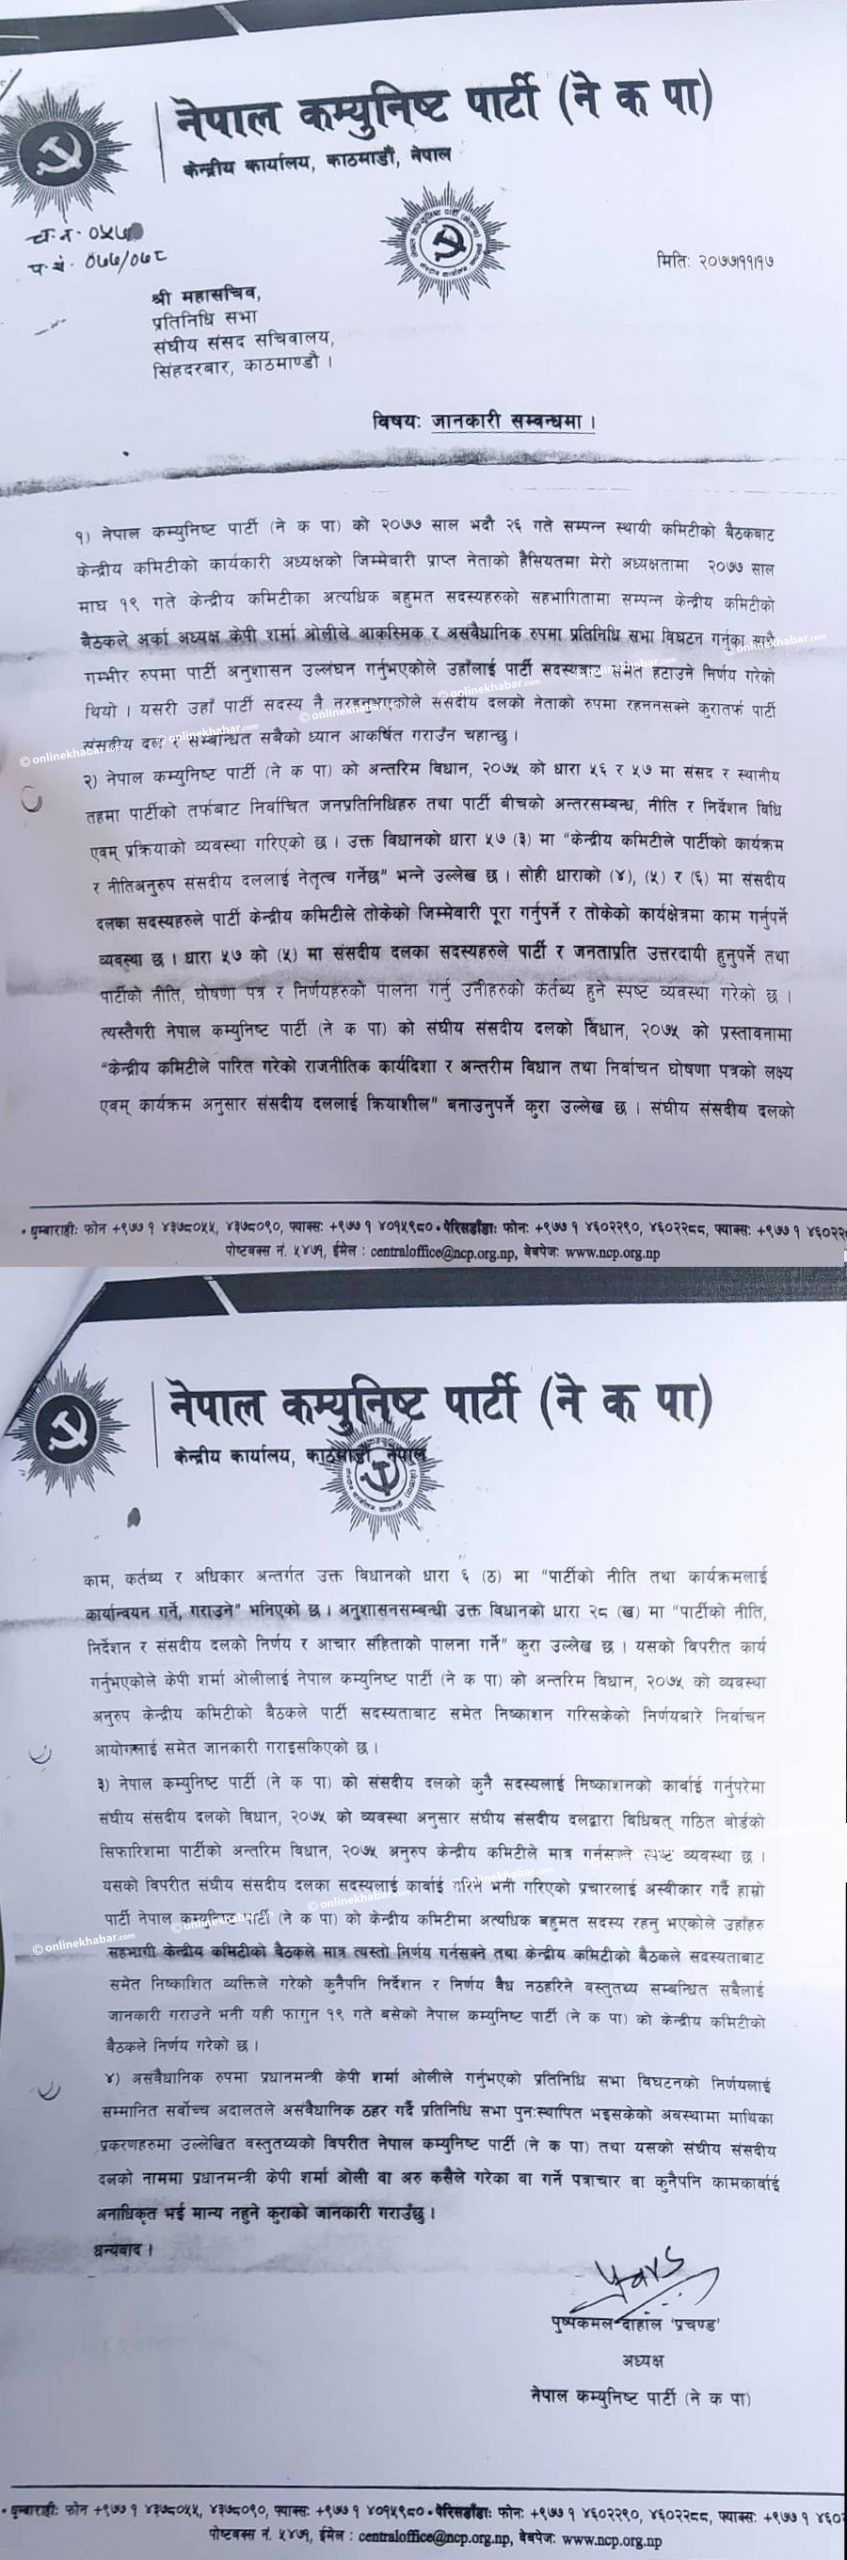 नेपाल कम्युनिष्ट पार्टी (ने क पा)
केन्द्रीय कार्यालय, काठमाडौं, नेपाल
प.सं. ०७७/०७८
मितिः २०७७।११।१७
श्री महासचिव,
प्रतिनिधि सभा
संघीय संसद सचिवालय,
सिंहदरबार, काठमाण्डौ ।
विषयः जानकारी सम्बन्धमा ।
१) नेपाल कम्युनिष्ट पार्टी (ने क पा) को २०७७ साल भदौ २६ गते सम्पन्न स्थायी कमिटीको बैठकबाट
केन्द्रीय कमिटीको कार्यकारी अध्यक्षको जिम्मेवारी प्राप्त नेताको हैसियतमा मेरो अध्यक्षतामा २०७७ साल
माघ १९ गते केन्द्रीय कमिटीका अत्यधिक बहुमत सदस्यहरुको सहभागितामा सम्पन्न केन्द्रीय कमिटीको
बैठकले अर्का अध्यक्ष केपी शर्मा ओलीले आकस्मिक र असंवैधानिक रुपमा प्रतिनिधि सभा विघटन गर्नुका साथै
गम्भीर रुपमा पार्टी अनुशासन उल्लंघन गर्नुभएकोले उहाँलाई पार्टी सदस्यबाट समेत हटाउने निर्णय गरेको
थियो । यसरी उहाँ पार्टी सदस्य नै नरहनुभएकोले संसदीय दलको नेताको रुपमा रहननसक्ने कुरातर्फ पार्टी
संसदीय दल र सम्बन्धित सबैको ध्यान आकर्षित गराउँन चहान्छु ।
२) नेपाल कम्युनिष्ट पार्टी (ने क पा) को अन्तरिम विधान, २०७५ को धारा ५६ र ५७ मा संसद र स्थानीय
तहमा पार्टीको तर्फबाट निर्वाचित जनप्रतिनिधिहरु तथा पार्टी बीचको अन्तरसम्बन्ध, नीति र निर्देशन विधि
एवम् प्रक्रियाको व्यवस्था गरिएको छ । उक्त विधानको धारा ५७ (३) मा "केन्द्रीय कमिटीले पार्टीको कार्यक्रम
र नीतिअनुरुप संसदीय दललाई नेतृत्व गर्नेछ" भन्ने उल्लेख छ । सोही धाराको (४), (५) र (६) मा संसदीय
दलका सदस्यहरुले पार्टी केन्द्रीय कमिटीले तोकेको जिम्मेवारी पूरा गर्नुपर्ने र तोकेको कार्यक्षेत्रमा काम गर्नुपर्ने
व्यवस्था छ । धारा ५७ को (५) मा संसदीय दलका सदस्यहरुले पार्टी र जनताप्रति उत्तरदायी हुनुपर्ने तथा
पार्टीको नीति, घोषणा पत्र र निर्णयहरुको पालना गर्नु उनीहरुको कर्तव्य हुने स्पष्ट व्यवस्था गरेको छ ।
त्यस्तैगरी नेपाल कम्युनिष्ट पार्टी (ने क पा) को संघीय संसदीय दलको विधान, २०७५ को प्रस्तावनामा
"केन्द्रीय कमिटीले पारित गरेको राजनीतिक कार्यदिशा र अन्तरीम विधान तथा निर्वाचन घोषणा पत्रको लक्ष्य
एवम् कार्यक्रम अनुसार संसदीय दललाई क्रियाशील" बनाउनुपर्ने कुरा उल्लेख छ । संघीय संसदीय दलको
• धुम्बाराहीः फोन +९७७ १ ४३७८०५५, ४३७८०९०, फ्याक्सः +९७७ १ ४०१५९८० • पेरिसडाँडाः फोनः +९७७ १ ४६०२२९०, ४६०२२८८, फ्याक्सः +९७७ १ ४६०२२
पोष्टबक्स नं. ५४७१, ईमेल : centraloffice@ncp.org.np, वेबपेजः www.ncp.org.np
नेपाल कम्युनिष्ट पार्टी (ने क पा)
केन्द्रीय कार्यालय, काठमाडौं, नेपाल
काम, कर्तव्य र अधिकार अन्तर्गत उक्त विधानको धारा ६ (ठ) मा "पार्टीको नीति तथा कार्यक्रमलाई
कार्यान्वयन गर्ने, गराउने" भनिएको छ । अनुशासनसम्बन्धी उक्त विधानको धारा २८ (ख) मा "पार्टीको नीति,
निर्देशन र संसदीय दलको निर्णय र आचार संहिताको पालना गर्ने" कुरा उल्लेख छ । यसको विपरीत कार्य
गर्नुभएकोले केपी शर्मा ओलीलाई नेपाल कम्युनिष्ट पार्टी (ने क पा) को अन्तरिम विधान, २०७५ को व्यवस्था
अनुरुप केन्द्रीय कमिटीको बैठकले पार्टी सदस्यताबाट समेत निष्काशन गरिसकेको निर्णयबारे निर्वाचन
आयोगलाई समेत जानकारी गराइसकिएको छ ।
३) नेपाल कम्युनिष्ट पार्टी (ने क पा) को संसदीय दलको कुनै सदस्यलाई निष्काशनको कार्वाई गर्नुपरेमा
संघीय संसदीय दलको विधान, २०७५ को व्यवस्था अनुसार संघीय संसदीय दलद्वारा बिधिवत् गठित बोर्डको
सिफारिशमा पार्टीको अन्तरिम विधान, २०७५ अनुरुप केन्द्रीय कमिटीले मात्र गर्नसक्ने स्पष्ट व्यवस्था छ ।
यसको विपरीत संघीय संसदीय दलका सदस्यलाई कार्वाई गरिने भनी गरिएको प्रचारलाई अस्वीकार गर्दै हाम्रो
पार्टी नेपाल कम्युनिष्ट पार्टी (ने क पा) को केन्द्रीय कमिटीमा अत्यधिक बहुमत सदस्य रहनु भएकोले उहाँहरु
सहभागी केन्द्रीय कमिटीको बैठकले मात्र त्यस्तो निर्णय गर्नसक्ने तथा केन्द्रीय कमिटीको बैठकले सदस्यताबाट
समेत निष्काशित व्यक्तिले गरेको कुनैपनि निर्देशन र निर्णय बैध नठहरिने वस्तुतथ्य सम्बन्धित सबैलाई
जानकारी गराउने भनी यही फागुन १९ गते बसेको नेपाल कम्युनिष्ट पार्टी (ने क पा) को केन्द्रीय कमिटीको
बैठकले निर्णय गरेको छ ।
४) असंवैधानिक रुपमा प्रधानमन्त्री केपी शर्मा ओलीले गर्नुभएको प्रतिनिधि सभा विघटनको निर्णयलाई
सम्मानित सर्वोच्च अदालतले असंवैधानिक ठहर गर्दै प्रतिनिधि सभा पुनःस्थापित भइसकेको अवस्थामा माथिका
प्रकरणहरुमा उल्लेखित वस्तुतथ्यको विपरीत नेपाल कम्युनिष्ट पार्टी (ने क पा) तथा यसको संघीय संसदीय
दलको नाममा प्रधानमन्त्री केपी शर्मा ओली वा अरु कसैले गरेका वा गर्ने पत्राचार वा कुनैपनि कामकार्वाई
अनाधिकृत भई मान्य नहुने कुराको जानकारी गराउँछु ।
धन्यवाद ।
पुष्पकमल दाहाल 'प्रचण्ड'
अध्यक्ष
नेपाल कम्युनिष्ट पार्टी (ने क पा)
• धुम्बाराहीः फोन +९७७ १ ४३७८०५५, ४३७८०९०, फ्याक्सः +९७७ १ ४०१५९८० • पेरिसडाँडाः फोनः +९७७ १ ४६०२२९०, ४६०२२८८, फ्याक्सः +९७७ १ ४६०
पोष्टबक्स नं. ५४७१, ईमेल : centraloffice@ncp.org.np, वेबपेजः www.ncp.org.np
© onlinekhabar.com